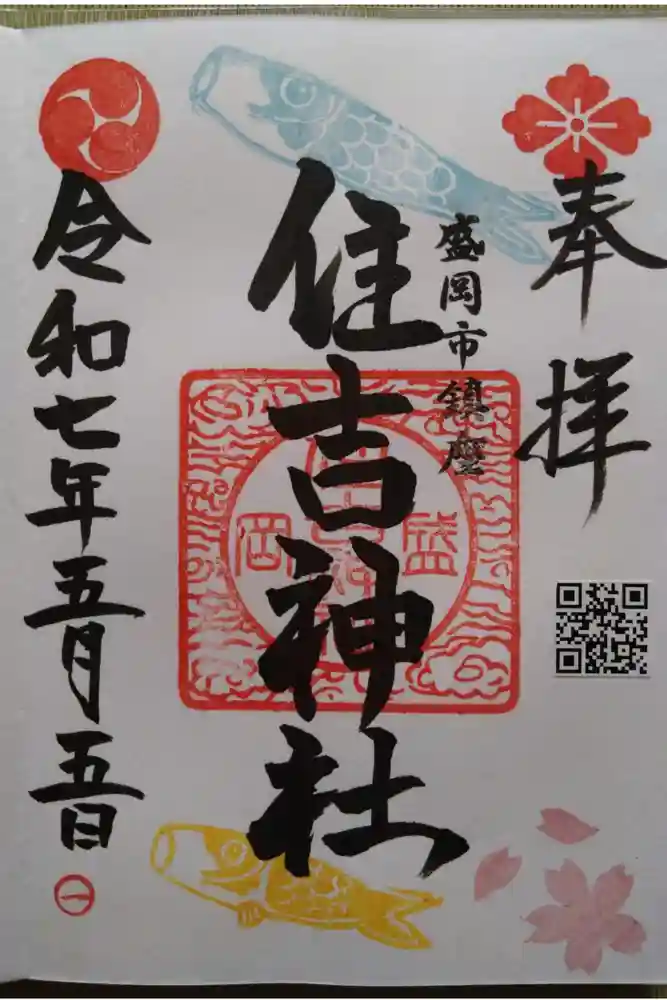 奉拝
盛岡市鎮座
住吉神社
盛岡
令和七年五月五日